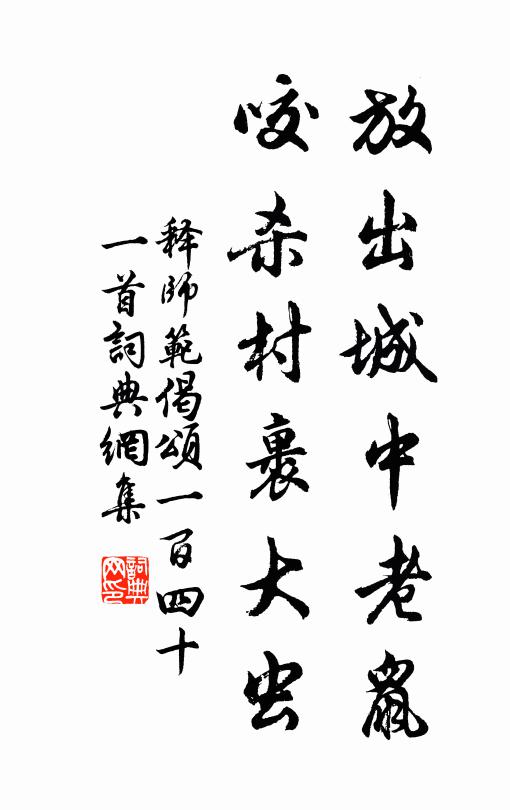 放出城中老鼠
咬杀村裏大虫
释師範偈頌一百四十
一首詞典網集
詞典网印